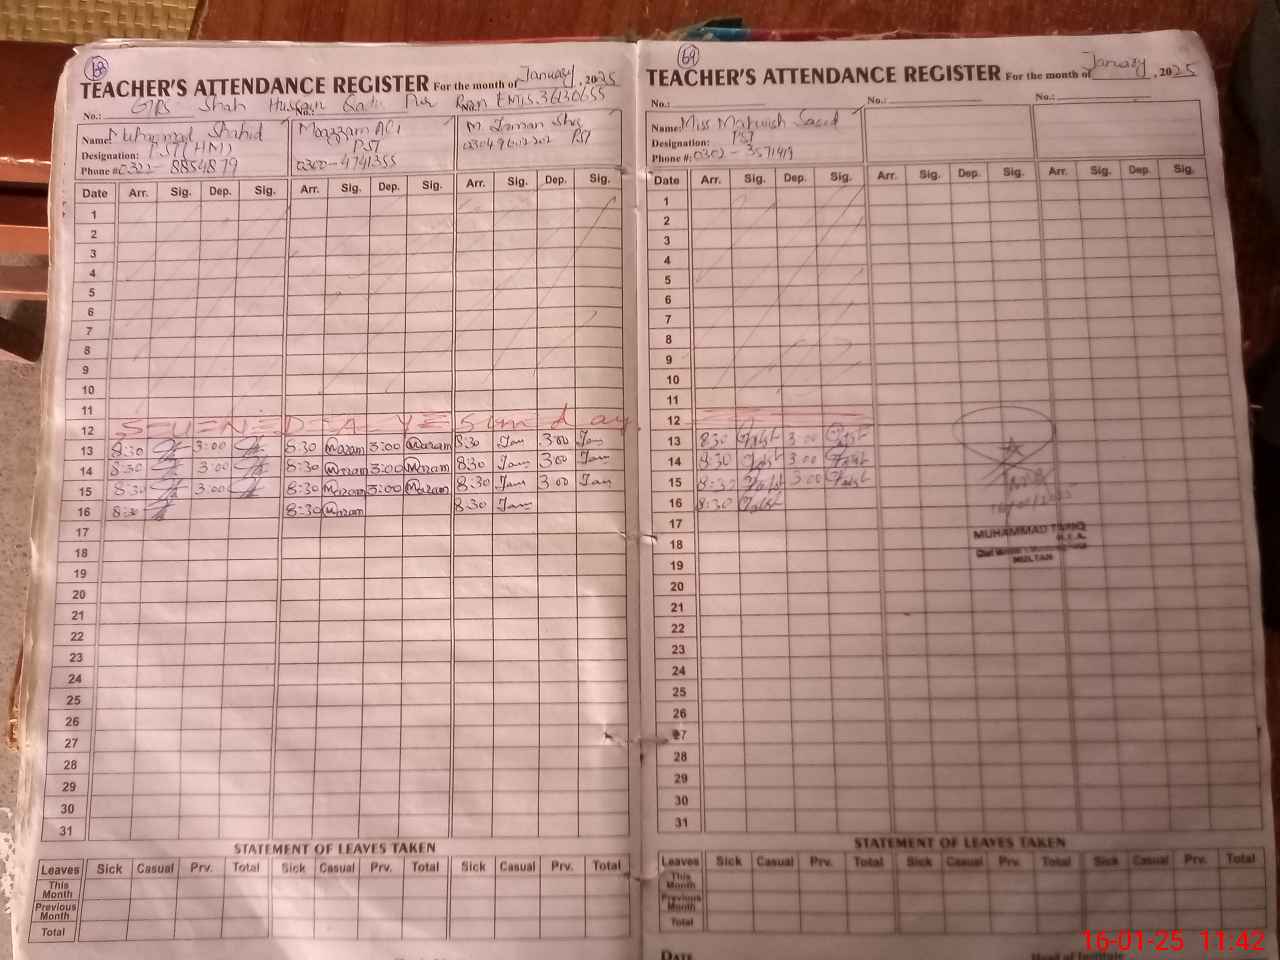 68
TEACHER'S ATTENDANCE REGISTER For the month of January, 2025
Shah Hussain EMIS.36130655
No.: No.: No.:
Name: Muhammad Shahid
Designation: PST (HM)
Phone #: 0322-8854879
Moazzam Ali
PST
0300-4741355
M. Imran
PST
Date Arr. Sig. Dep. Sig. Arr. Sig. Dep. Sig. Arr. Sig. Dep. Sig.
1
2
3
4
5
6
7
8
9
10
11
12 Sunday
13 8:30 3:00 8:30 Moazam 3:00 Moazam 8:30 3:00
14 8:30 3:00 8:30 Moazam 3:00 Moazam 8:30 3:00
15 8:30 3:00 8:30 Moazam 3:00 Moazam 8:30 3:00
16 8:30 8:30 Moazam 8:30
17
18
19
20
21
22
23
24
25
26
27
28
29
30
31
STATEMENT OF LEAVES TAKEN
Leaves Sick Casual Prv. Total Sick Casual Prv. Total Sick Casual Prv. Total
This Month
Previous Month
Total
69
TEACHER'S ATTENDANCE REGISTER For the month of January, 2025
No.: No.: No.:
Name: Miss Mahwish Saeed
Designation: PST
Phone #: 0302-3571419
Date Arr. Sig. Dep. Sig. Arr. Sig. Dep. Sig. Arr. Sig. Dep. Sig.
1
2
3
4
5
6
7
8
9
10
11
12
13 8:30 3:00
14 8:30 3:00
15 8:30 3:00
16 8:30
17
18
19
20
21
22
23
24
25
26
27
28
29
30
31
MUHAMMAD TARIQ
MULTAN
STATEMENT OF LEAVES TAKEN
Leaves Sick Casual Prv. Total Sick Casual Prv. Total Sick Casual Prv. Total
This Month
Previous Month
Total
DATE Head of Institute
16-01-25 11:42